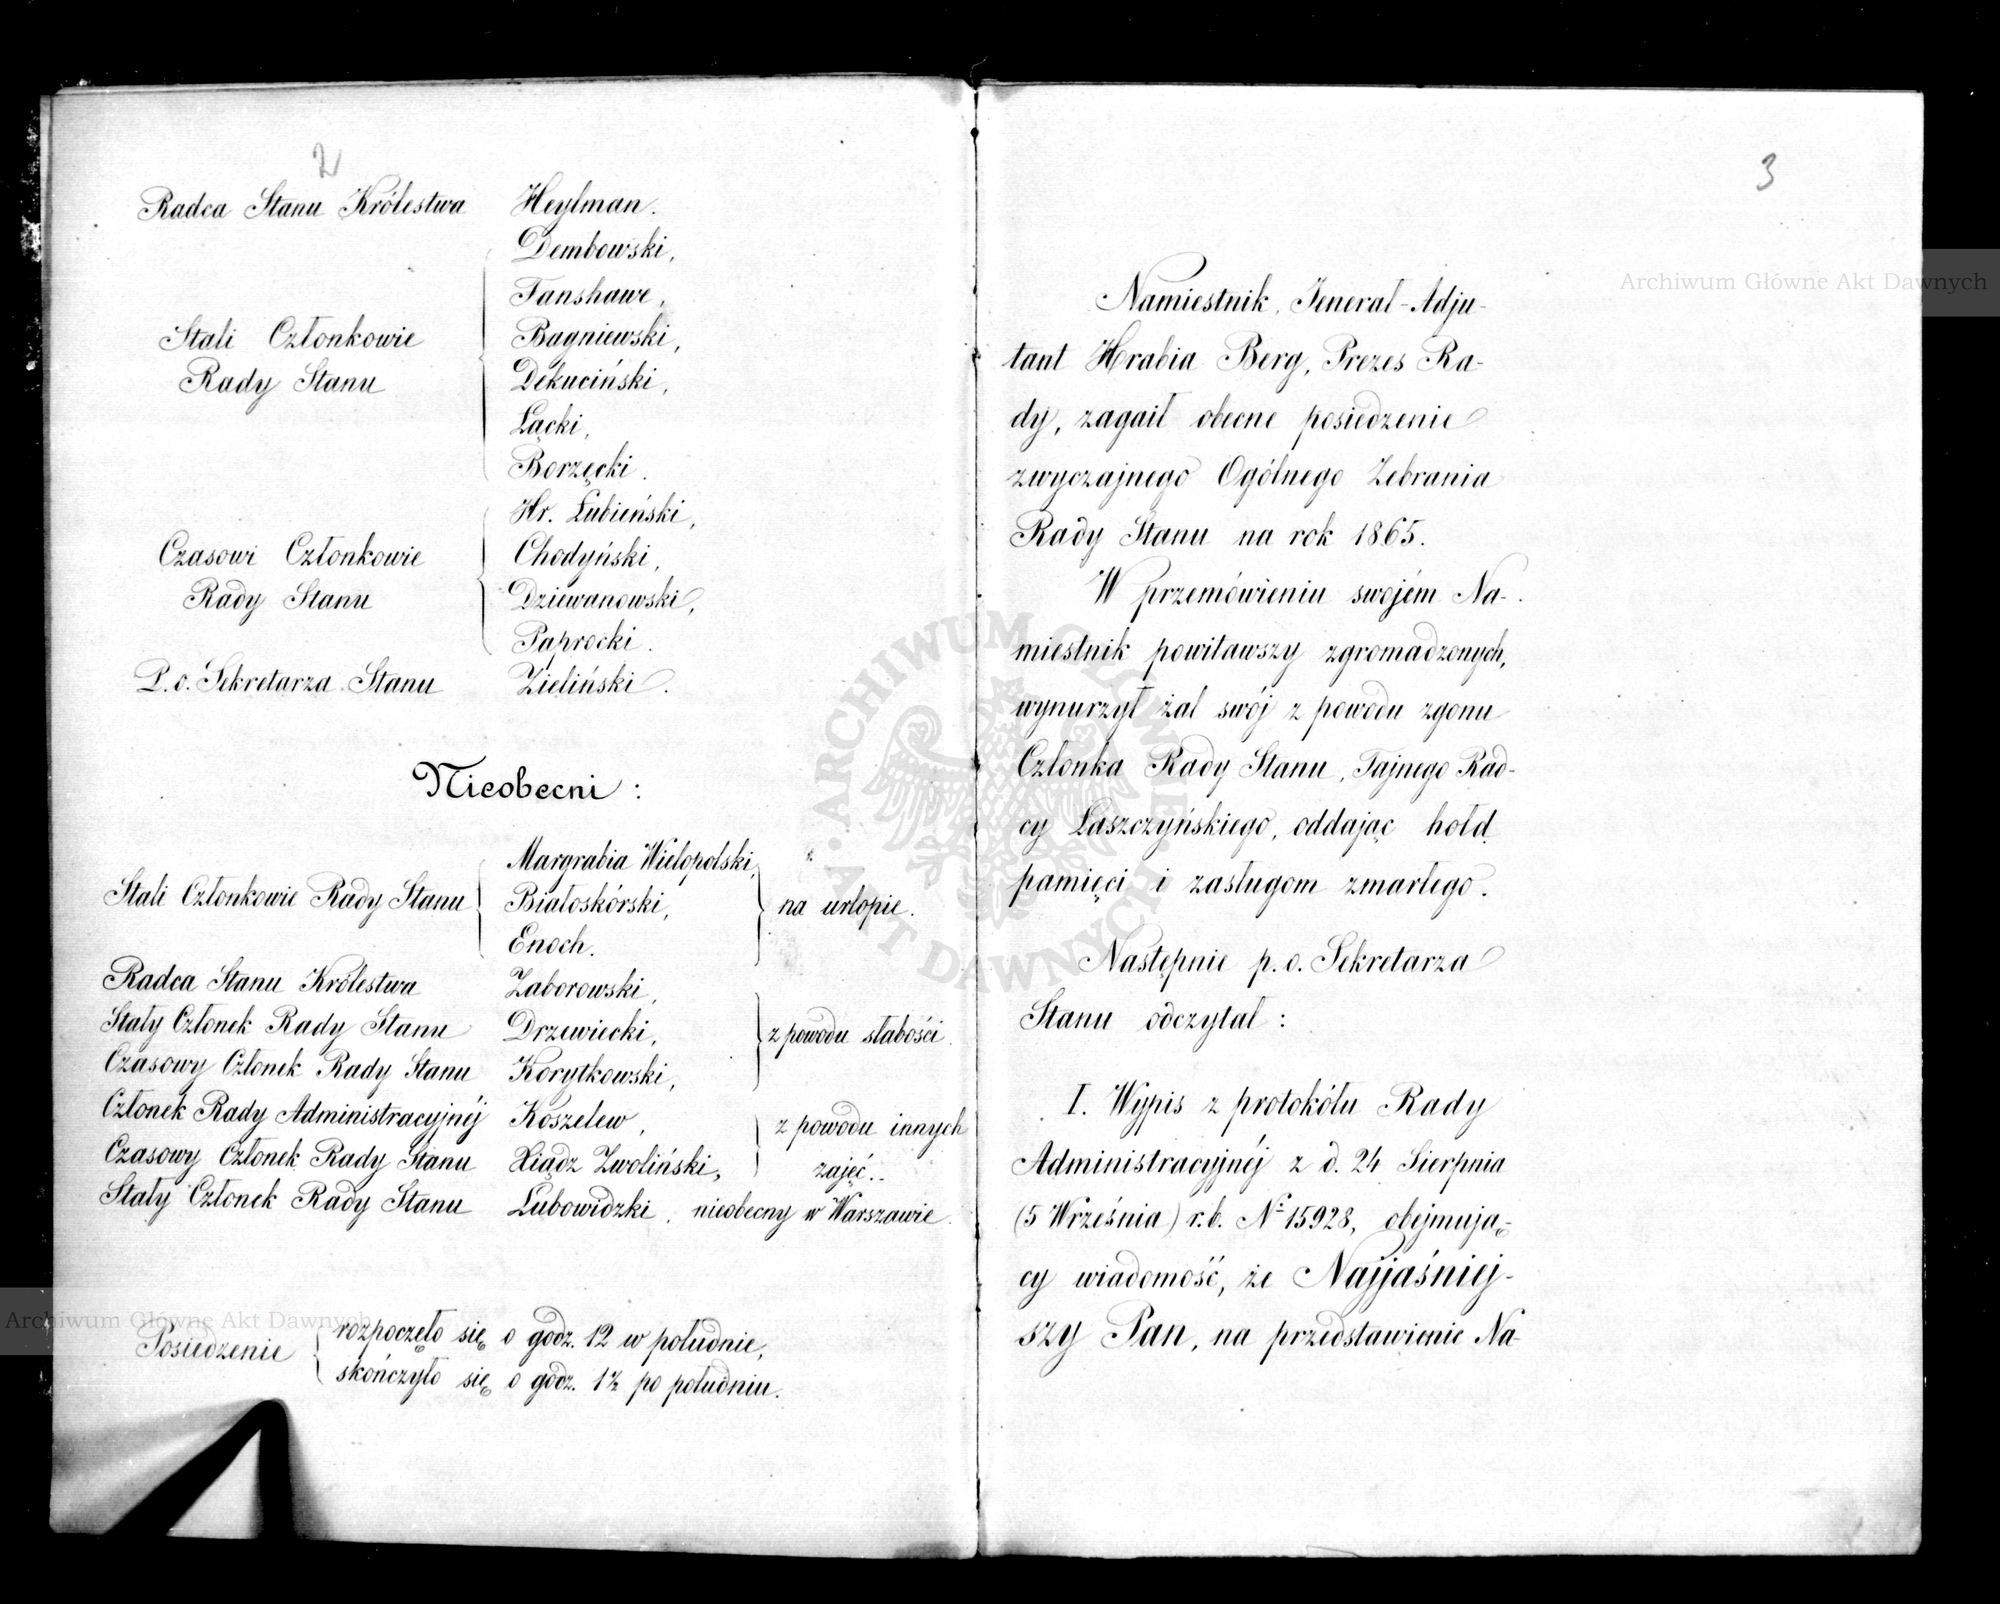 2
Radca Stanu Królestwa Heylman.
Stali Członkowie
Rady Stanu
Dembowski,
Fanshawe,
Bagniewski,
Dekuciński,
Łącki,
Borzęcki.
Czasowi Członkowie
Rady Stanu
Hr. Łubieński,
Chodyński,
Dziewanowski,
Paprocki.
P. o. Sekretarza Stanu Zieliński.
Nieobecni:
Stali Członkowie Rady Stanu
Margrabia Wielopolski,
Białoskórski,
Enoch.
na urlopie.
Radca Stanu Królestwa Zaborowski,
Stały Członek Rady Stanu Drzewiecki,
Czasowy Członek Rady Stanu Korytkowski,
z powodu słabości.
Członek Rady Administracyjnéj Koszelew,
Czasowy Członek Rady Stanu Xiądz Zwoliński,
z powodu innych
zajęć.
Stały Członek Rady Stanu Lubowidzki, nieobecny w Warszawie.
Posiedzenie
rozpoczęło się o godz. 12 w południe,
skończyło się o godz. 1½ po południu.
3
Namiestnik, Jenerał-Adju-
tant Hrabia Berg, Prezes Ra-
dy, zagaił obecne posiedzenie
zwyczajnego Ogólnego Zebrania
Rady Stanu na rok 1865.
W przemówieniu swojém Na-
miestnik powitawszy zgromadzonych,
wynurzył żal swój z powodu zgonu
Członka Rady Stanu, Tajnego Rad-
cy Łaszczyńskiego, oddając hołd
pamięci i zasługom zmarłego.
Następnie p. o. Sekretarza
Stanu odczytał:
I. Wypis z protokółu Rady
Administracyjnéj z d. 24 Sierpnia
(5 Września) r. b. № 15928, obejmują-
cy wiadomość, że Najjaśniej-
szy Pan, na przedstawienie Na-
Archiwum Główne Akt Dawnych
Archiwum Główne Akt Dawnych
ARCHIWUM GŁÓWNE AKT DAWNYCH